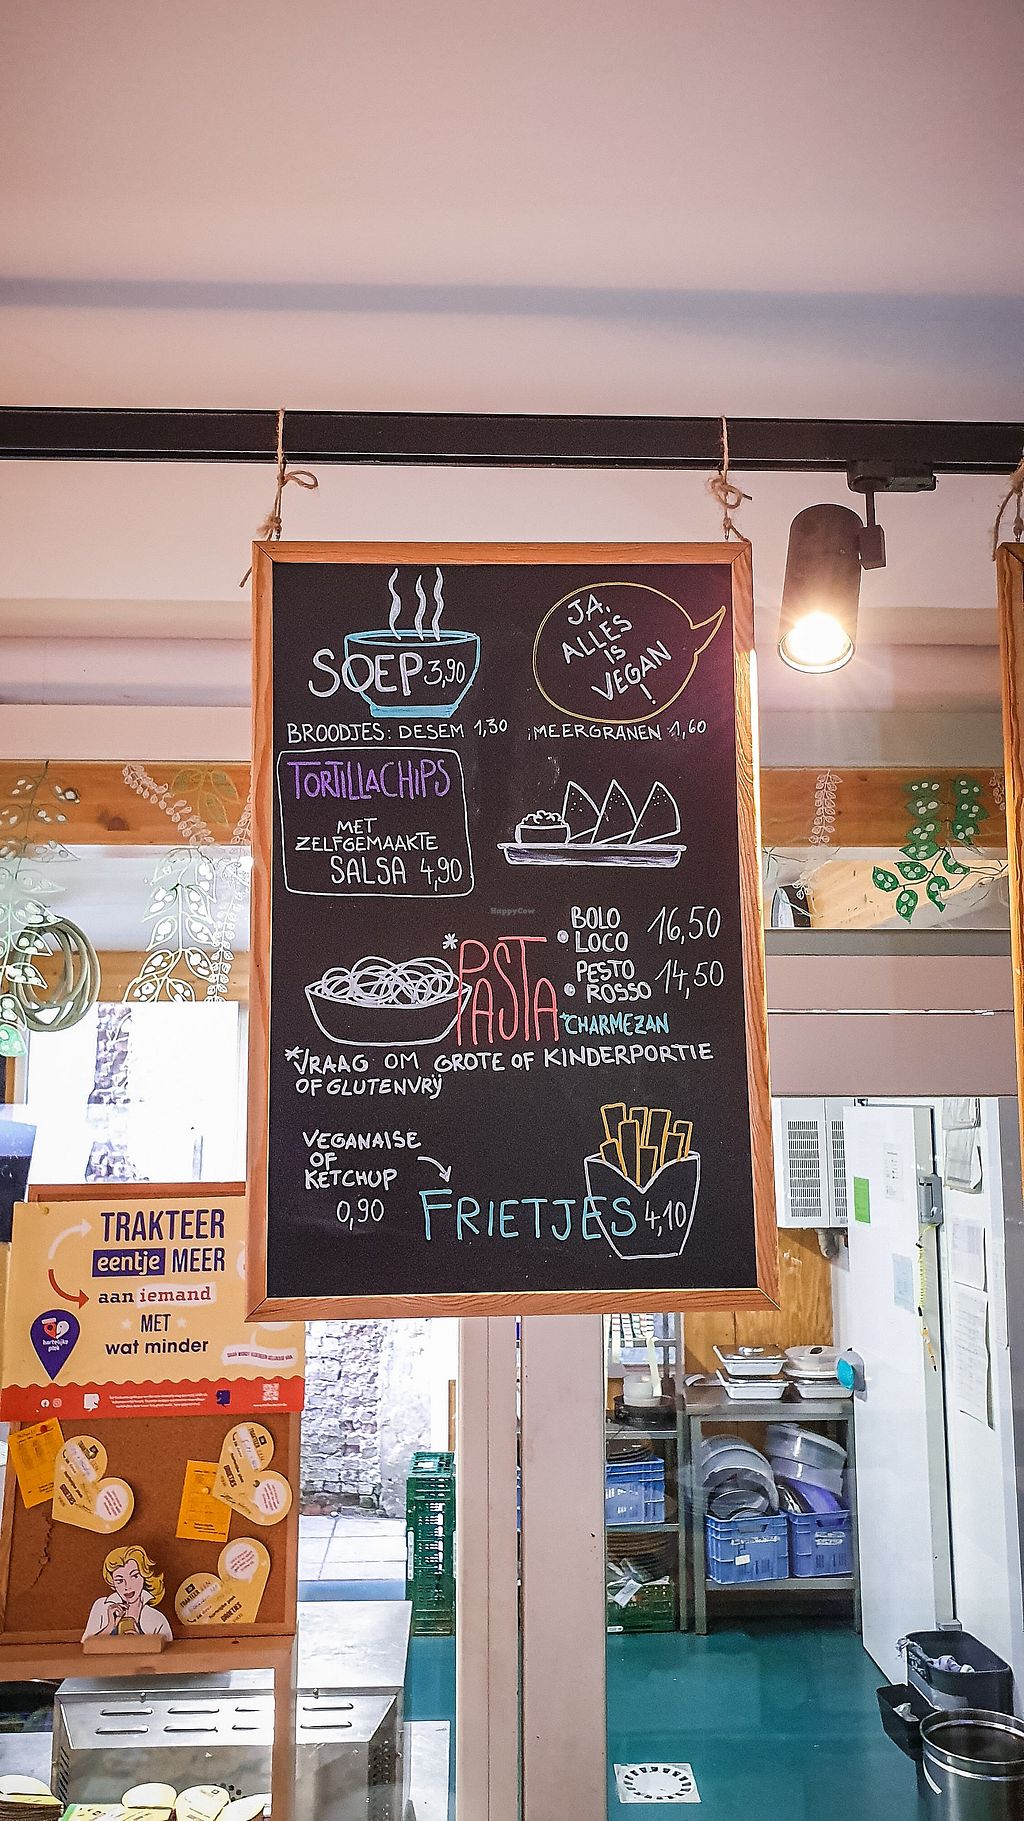 JA,
ALLES
IS
VEGAN
!
SOEP 3,90
BROODJES: DESEM 1,30 ;MEERGRANEN 1,60
TORTILLACHIPS
MET
ZELFGEMAAKTE
SALSA 4,90
HappyCow
*PASTA
• BOLO LOCO 16,50
• PESTO ROSSO 14,50
*CHARMEZAN
*VRAAG OM GROTE OF KINDERPORTIE
OF GLUTENVRIJ
VEGANAISE
OF
KETCHUP
0,90
FRIETJES 4,10
TRAKTEER
eentje MEER
aan iemand
MET
wat minder
hartelijke
plek